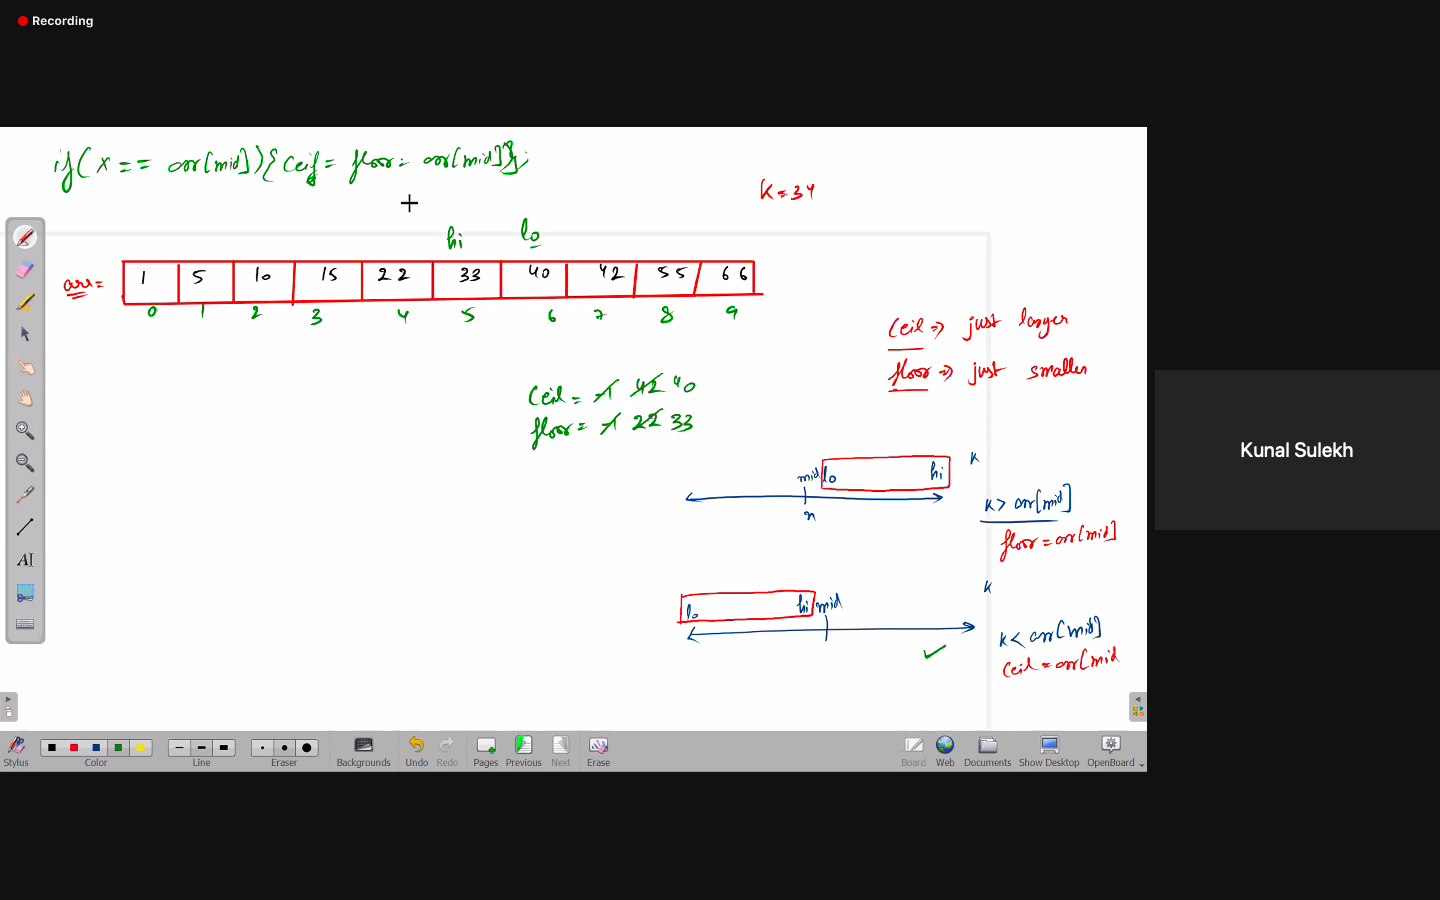 Recording
if(x == arr[mid]){ceil = floor = arr[mid]};
K = 34
hi lo
arr= 1 5 10 15 22 33 40 42 55 66
0 1 2 3 4 5 6 7 8 9
Ceil => just larger
floor => just smaller
Ceil = -1 42 40
floor = -1 22 33
mid lo hi K
n
K > arr[mid]
floor = arr[mid]
K
lo hi mid
K < arr[mid]
Ceil = arr[mid
Kunal Sulekh
Stylus Color Line Eraser Backgrounds Undo Redo Pages Previous Next Erase Board Web Documents Show Desktop OpenBoard